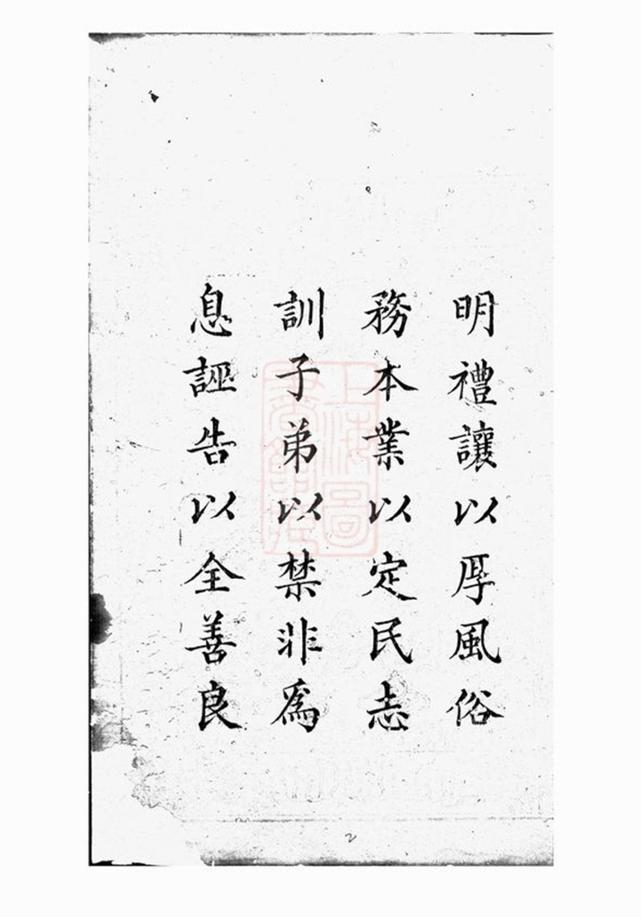 明禮讓以厚風俗
務本業以定民志
訓子弟以禁非爲
息誣告以全善良
上海圖
2